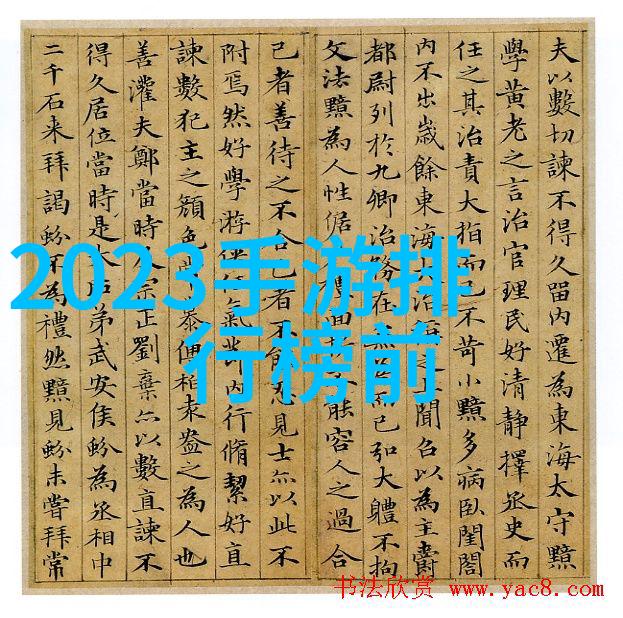 夫以數切諫不得久留內遷為東海太守黯
學黃老之言治官理民好清靜擇丞史而
任之其治責大指而已不苛小黯多病臥閨閤
內不出歲餘東海大治之上聞召以為主爵
都尉列於九卿治務在而已弘大體不拘
文法黯為人性倨面能容人之過合
己者善待之不合己者不能忍見士亦以此不
附焉然好學游俠氣節內行脩絜好直
諫數犯主之顏色慕傅柏袁盎之為人也
善灌夫鄭當時宗正劉棄亦以數直諫不
得久居位當時是太后弟武安侯蚡為丞相中
二千石來拜謁蚡不為禮然黯見蚡未嘗拜常
2023手游排
行榜前
书法欣赏 www.yac8.com